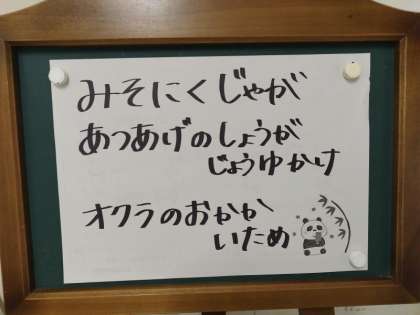 みそにくじゃが
あつあげのしょうが
じょうゆかけ
オクラのおかか
いため